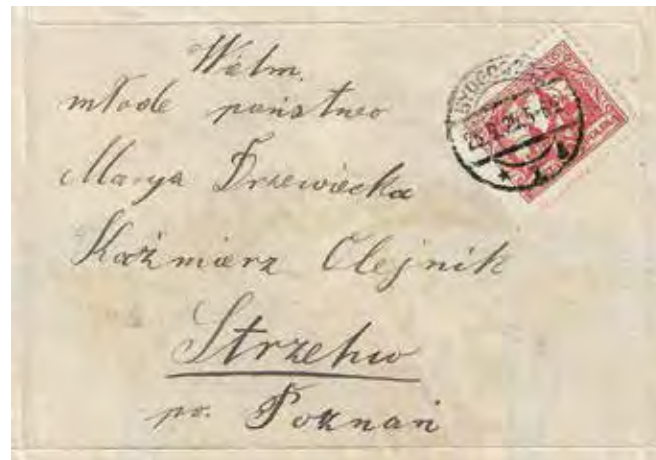 Wełm.
młode państwo
Marya Drzewiecka
Kaźmierz Olejnik
Strzehw
po. Poznań
BYDGOSZCZ
POLSKA